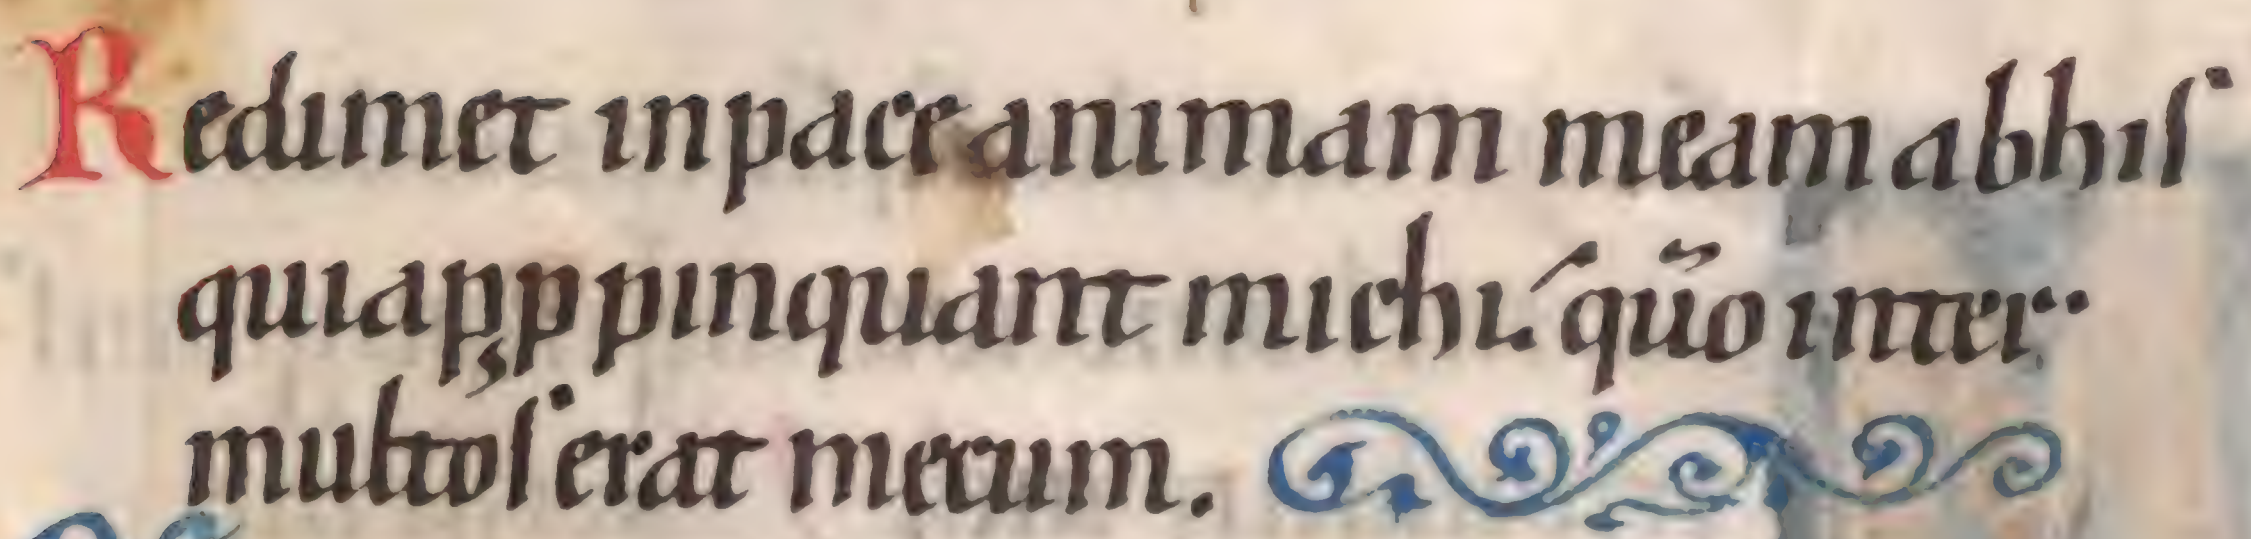 Redimet in pace animam meam ab hiſ
qui apꝓpinquant michi. quō inter
multoſ erat mecum.